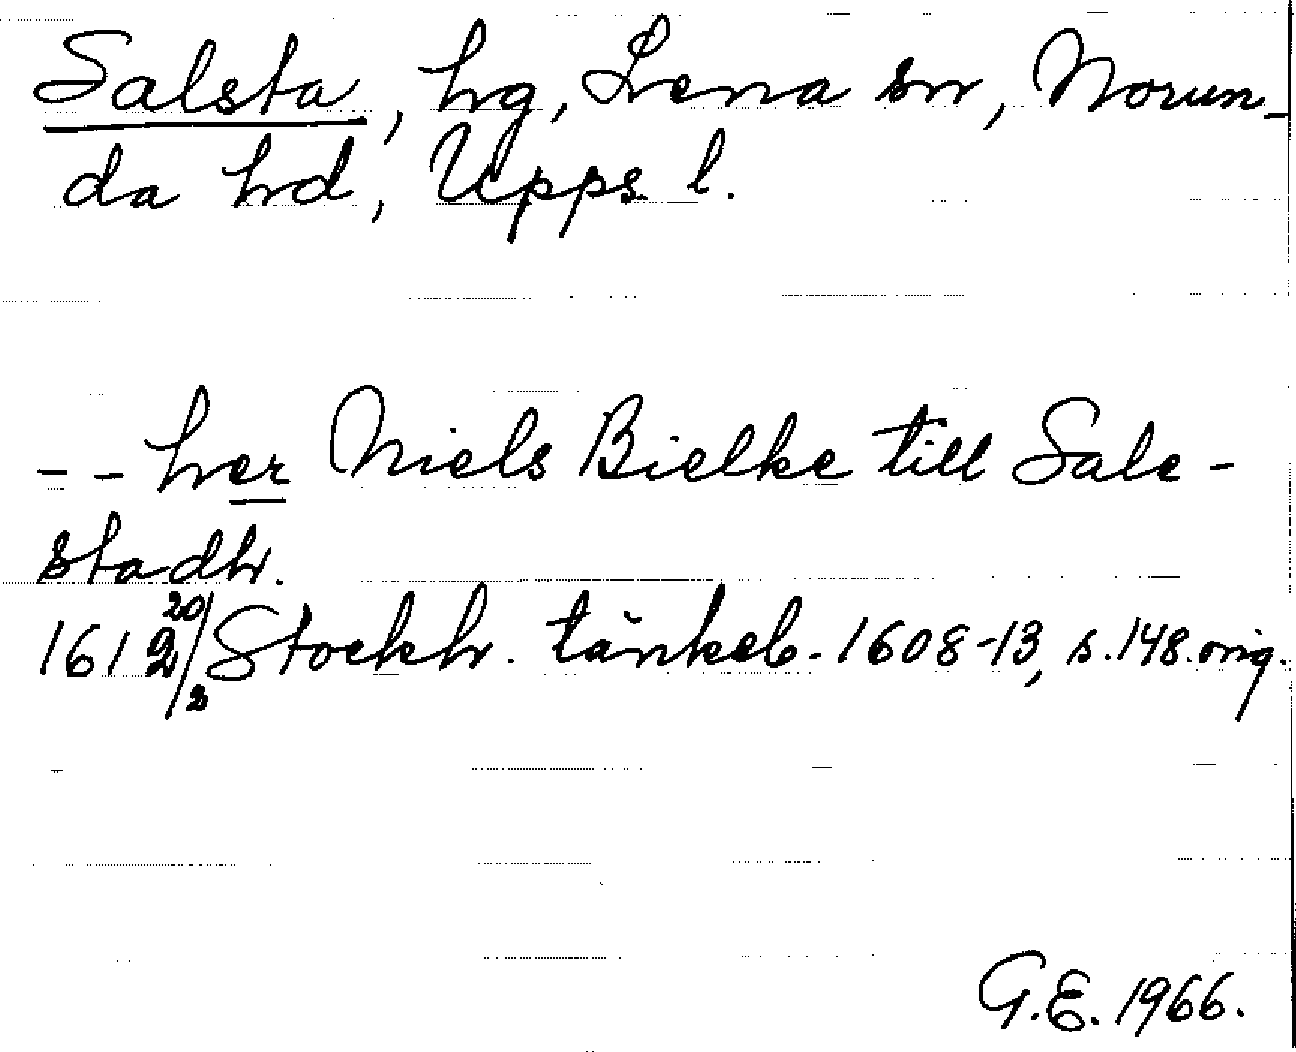 Salsta, hg, Lena sn, Norun-
da hd, Upps. l.
- - her Niels Bielke till Sale-
stadh.
1612 20/2 Stockh. tänkeb. 1608-13, s. 148. orig.
G.E. 1966.